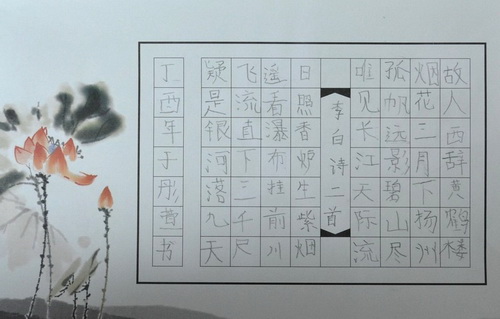 故人西辞黄鹤楼
烟花三月下扬州
孤帆远影碧山尽
唯见长江天际流
李白诗二首
日照香炉生紫烟
遥看瀑布挂前川
飞流直下三千尺
疑是银河落九天
丁酉年于彤萱书